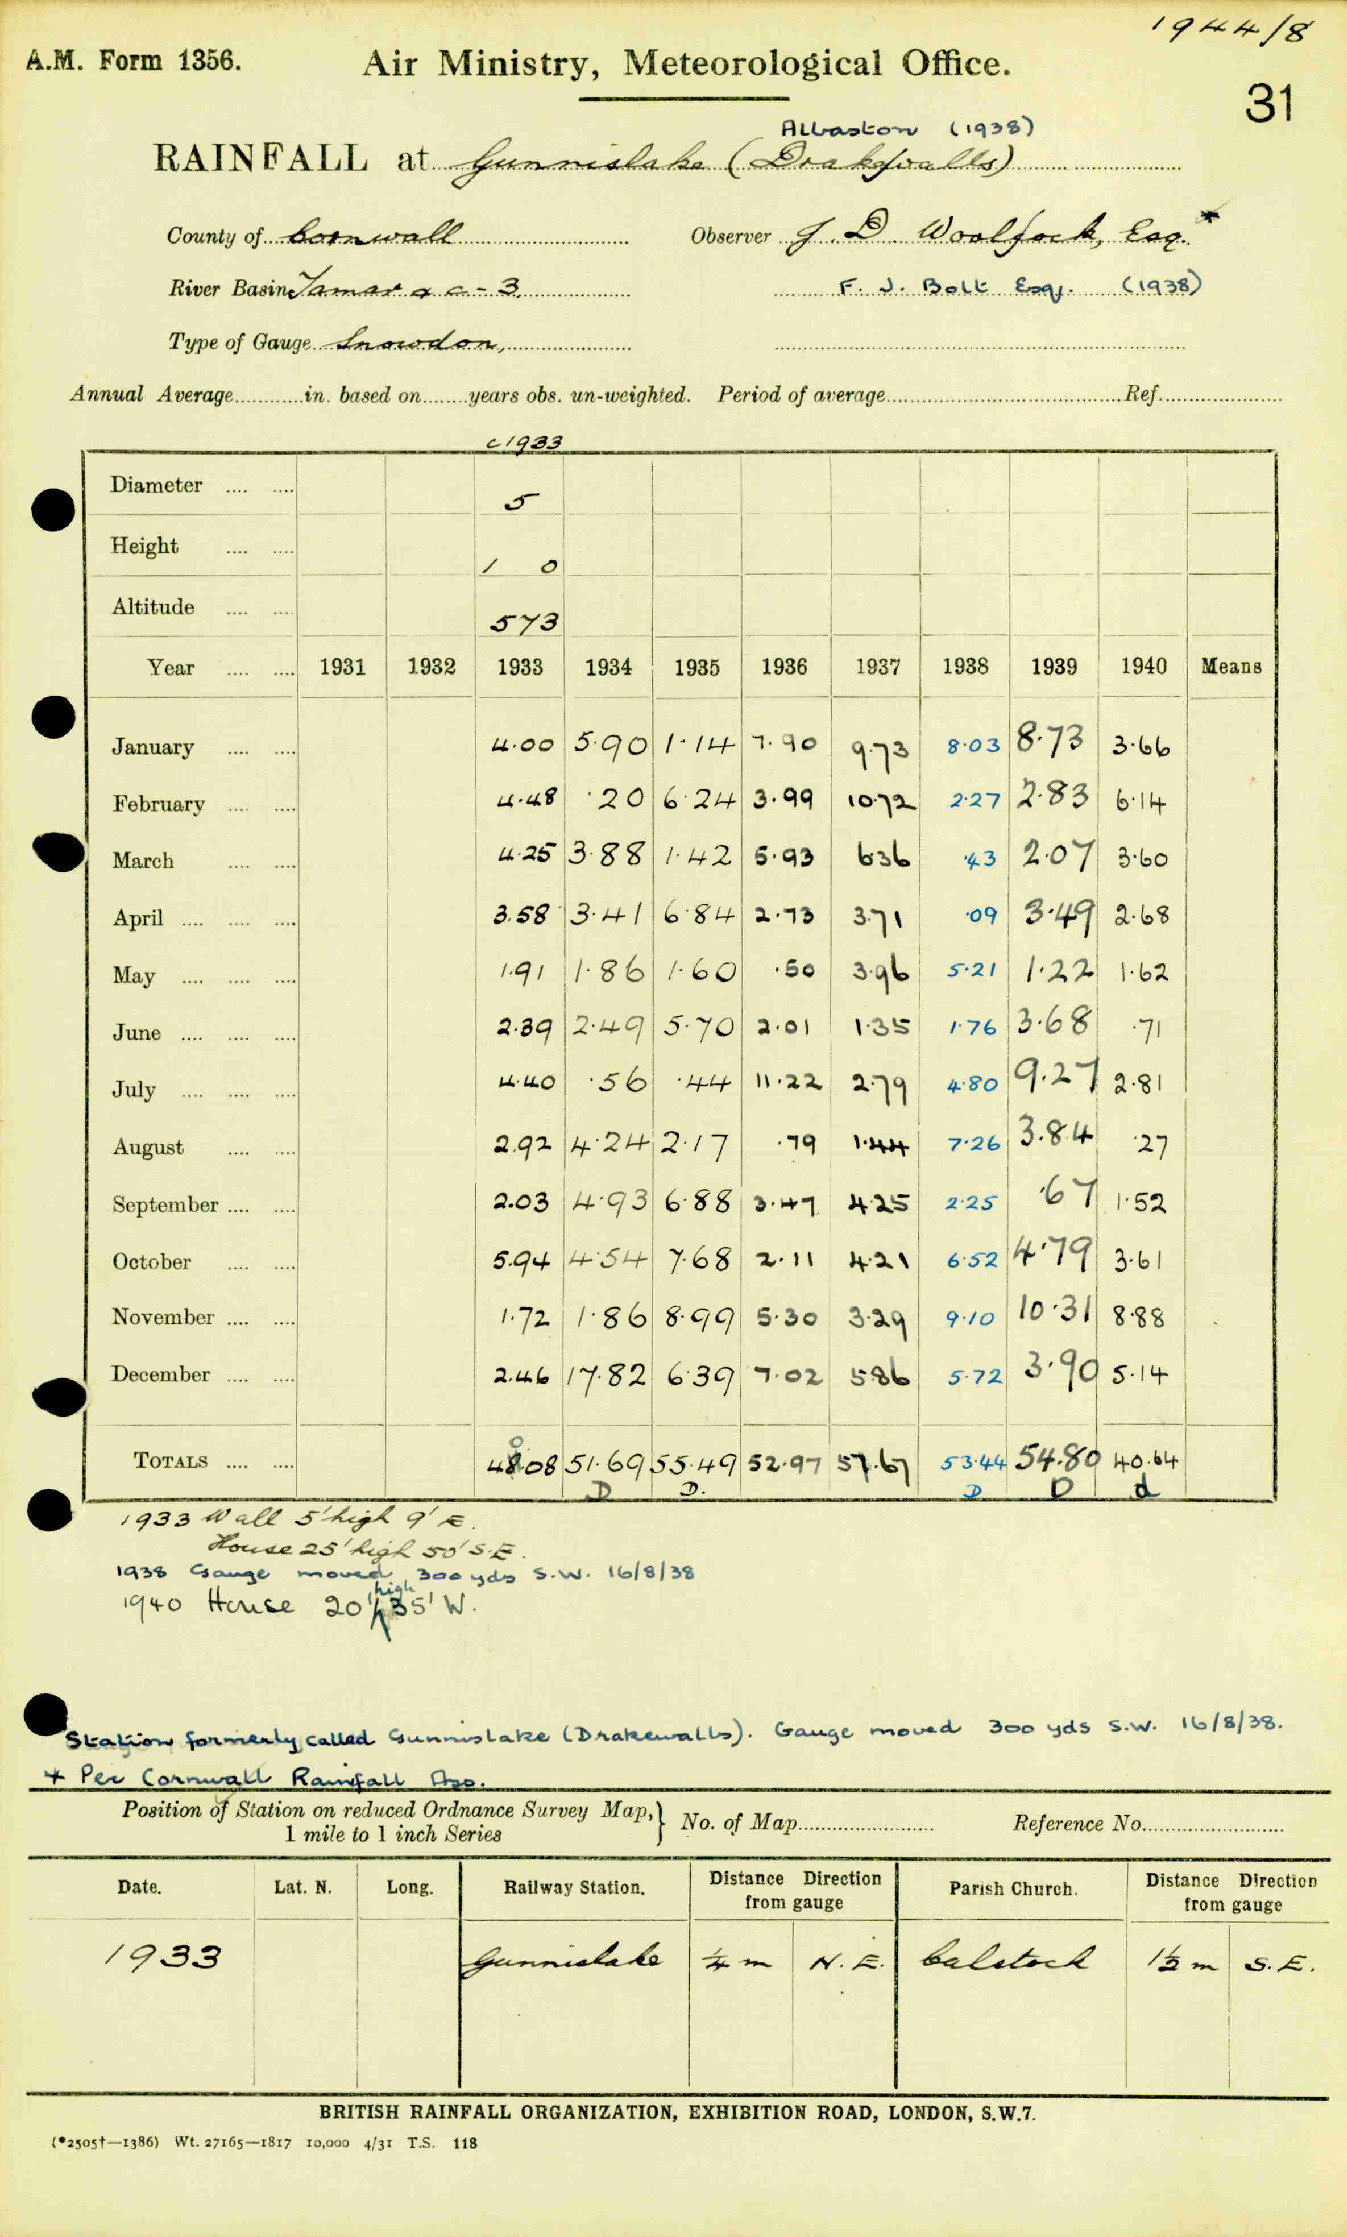 1944/8
A.M. Form 1356. Air Ministry, Meteorological Office.
31
Albaston (1938)
RAINFALL at Gunnislake (Drakewalls)
County of Cornwall Observer J. D. Woolfock, Esq.*
River Basin Tamar a c - 3. F. J. Bolt Esq. (1938)
Type of Gauge Snowdon,
Annual Average in. based on years obs. un-weighted. Period of average Ref.
c1933
Diameter 5
Height 1 0
Altitude 573
Year 1931 1932 1933 1934 1935 1936 1937 1938 1939 1940 Means
January 4.00 5.90 1.14 7.90 9.73 8.03 8.73 3.66
February 4.48 .20 6.24 3.99 10.72 2.27 2.83 6.14
March 4.25 3.88 1.42 5.93 6.36 .43 2.07 3.60
April 3.58 3.41 6.84 2.73 3.71 .09 3.49 2.68
May 1.91 1.86 1.60 .50 3.96 5.21 1.22 1.62
June 2.39 2.49 5.70 2.01 1.35 1.76 3.68 .71
July 4.40 .56 .44 11.22 2.79 4.80 9.27 2.81
August 2.92 4.24 2.17 .79 1.44 7.26 3.84 .27
September 2.03 4.93 6.88 3.47 4.25 2.25 .67 1.52
October 5.94 4.54 7.68 2.11 4.21 6.52 4.79 3.61
November 1.72 1.86 8.99 5.30 3.29 9.10 10.31 8.88
December 2.46 17.82 6.39 7.02 5.86 5.72 3.90 5.14
TOTALS 40.08 51.69 55.49 52.97 57.67 53.44 54.80 40.64
D D. D D d
1933 Wall 5' high 9' E.
House 25' high 50' S.E.
1938 Gauge moved 300 yds S.W. 16/8/38
1940 House 20' high 35' W.
Station formerly called Gunnislake (Drakewalls). Gauge moved 300 yds S.W. 16/8/38.
* Per Cornwall Rainfall Aso.
Position of Station on reduced Ordnance Survey Map, } No. of Map Reference No.
1 mile to 1 inch Series
Date. Lat. N. Long. Railway Station. Distance Direction from gauge Parish Church. Distance Direction from gauge
1933 Gunnislake ¼ m N.E. Calstock 1½ m S.E.
BRITISH RAINFALL ORGANIZATION, EXHIBITION ROAD, LONDON, S.W.7.
(*2505†—1386) Wt. 27165—1817 10,000 4/31 T.S. 118